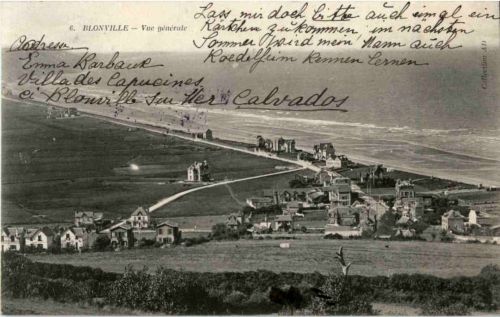 6. BLONVILLE — Vue générale
Lass mir doch bitte auch einmal ein
Kärtchen zukommen, im nächsten
Sommer wird mein Mann auch
kennen lernen
Adresse
Emma Barbaux
Villa des Capucines
Blonville sur Mer Calvados
Collection